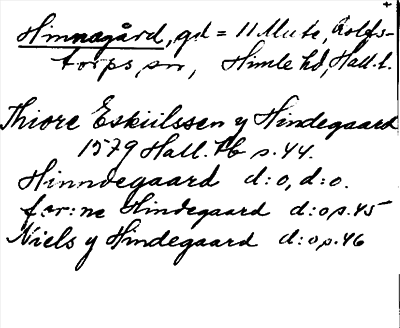 Himnagård, gd = 11 Mute, Rolfs-
torps sn, Himle hd, Hall. l.
Thiore Eskiilssen y Hindegaard
1579 Hall. Lb s. 44.
Hinndegaard d:o, d:o.
før:ne Hindegaard d:o s. 45
Niels y Hindegaard d:o s. 46